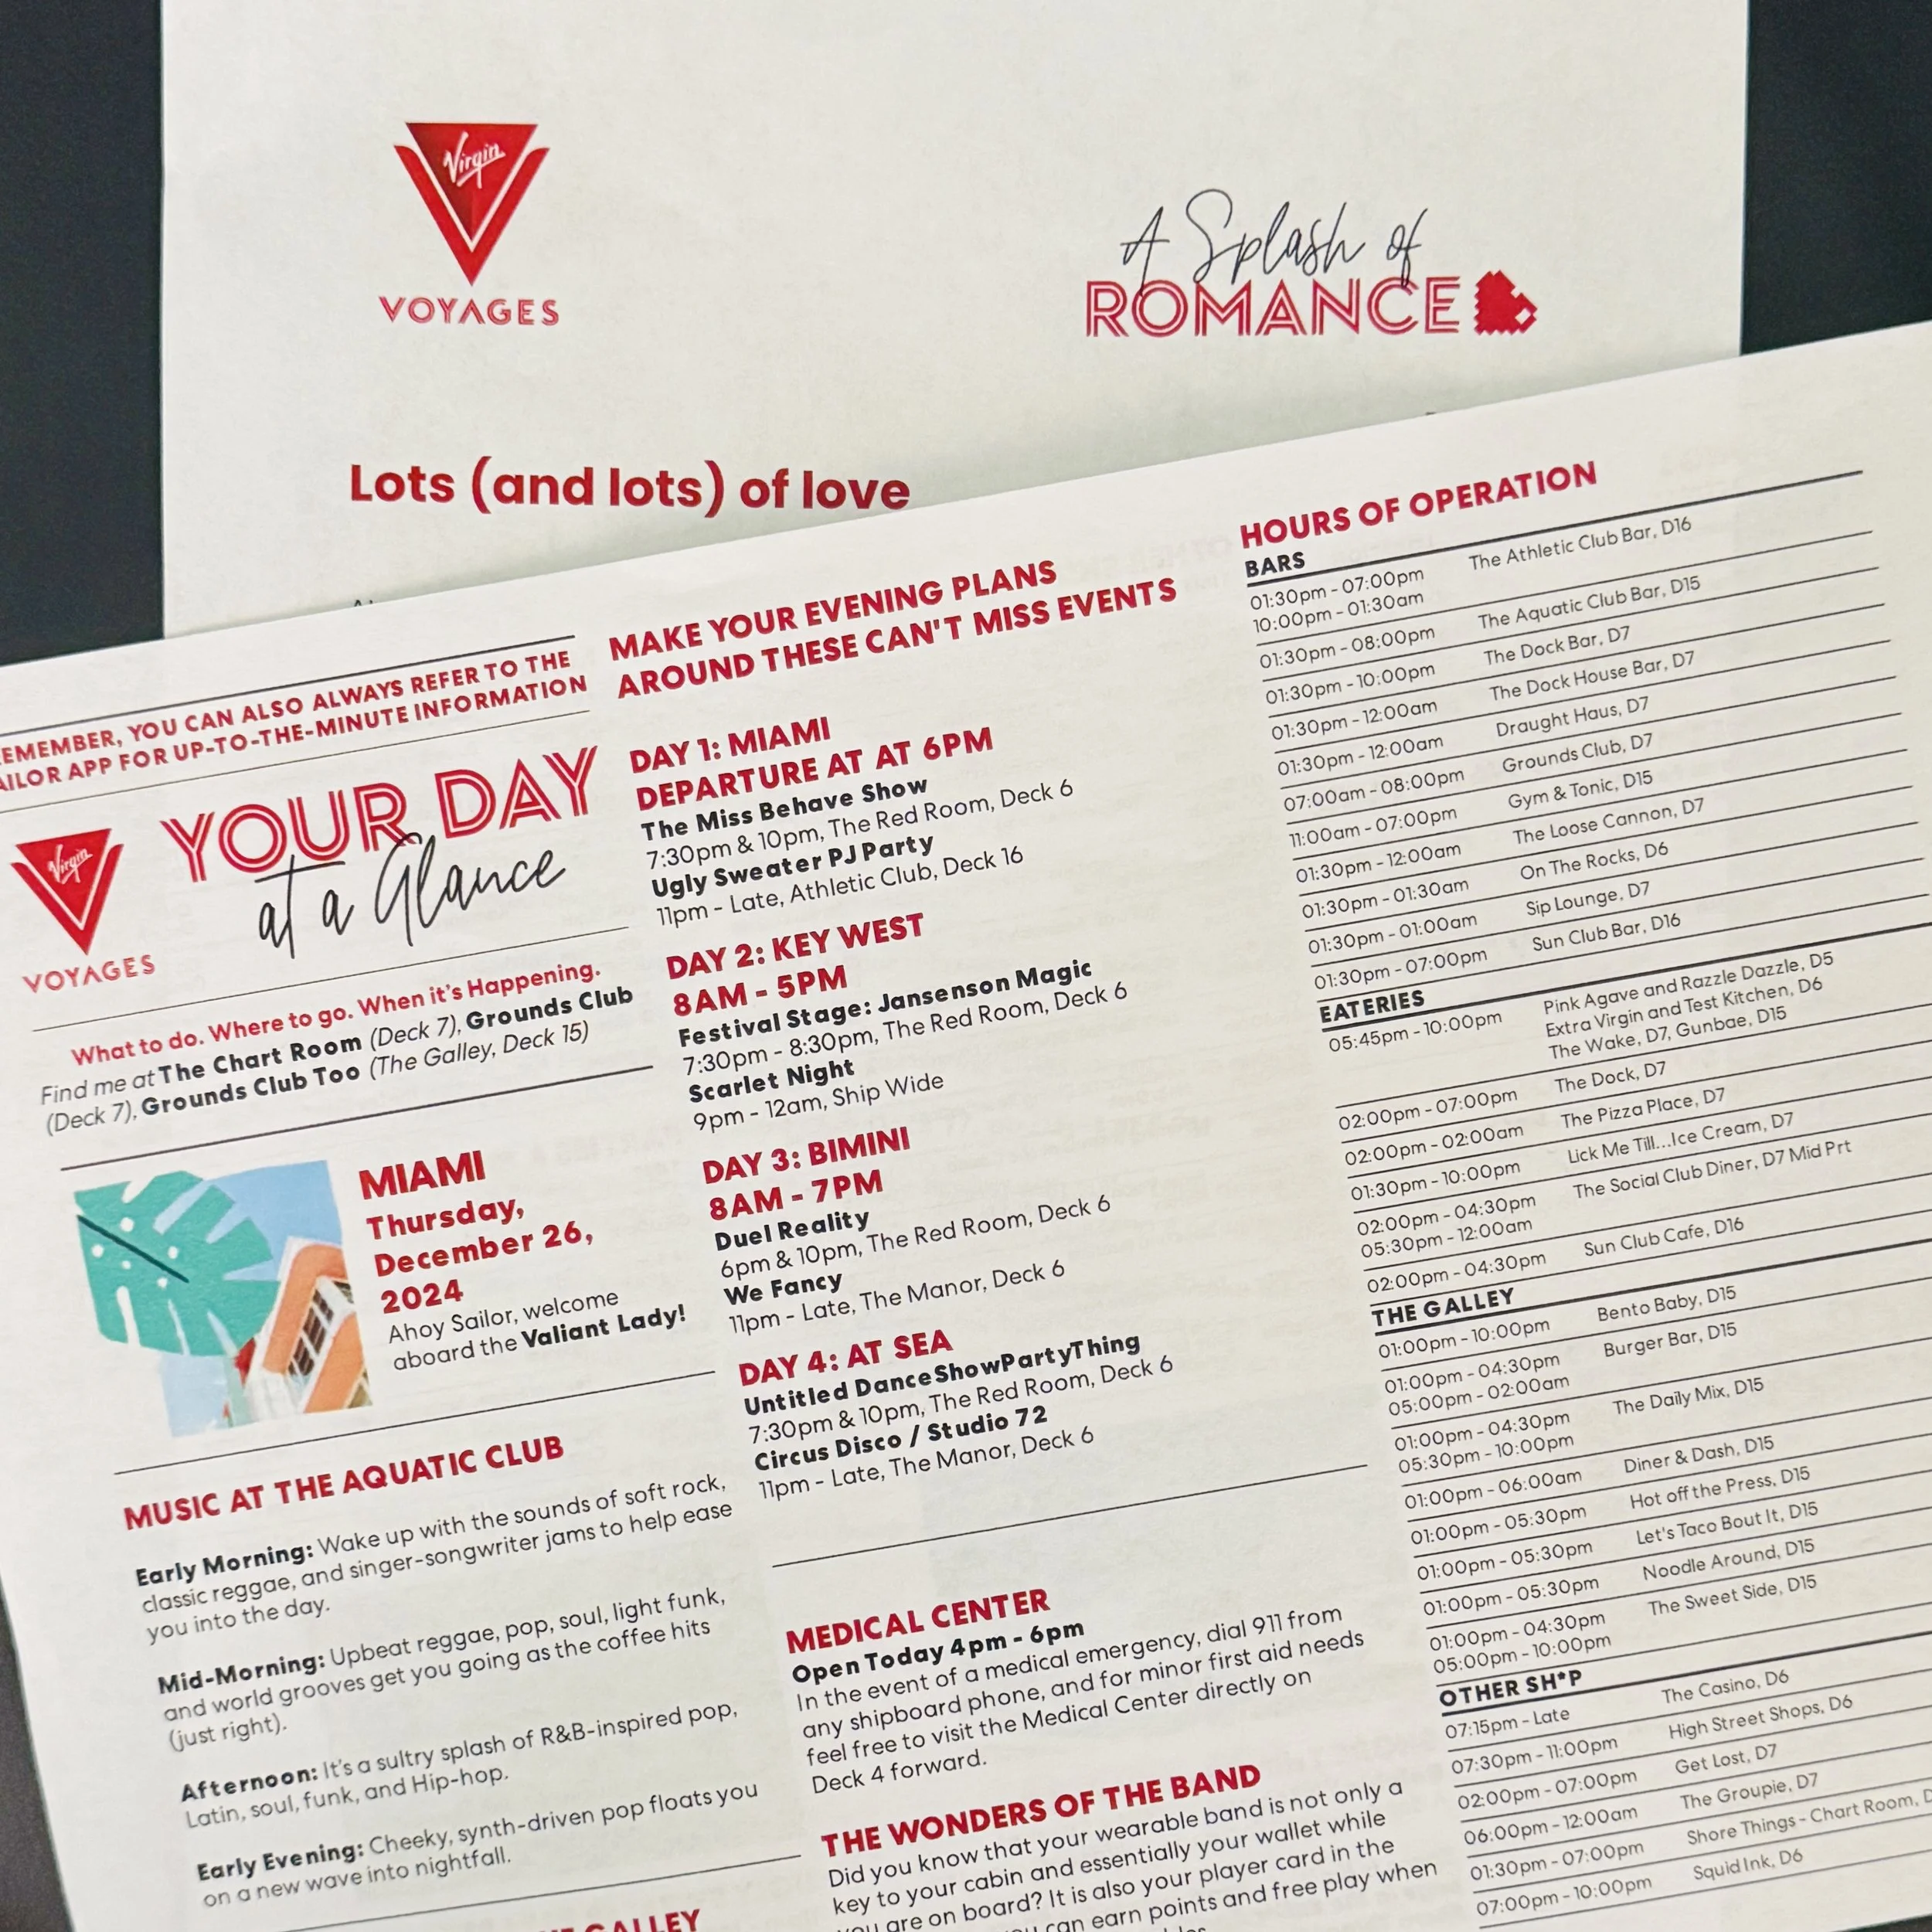 Virgin
VOYAGES
A Splash of
ROMANCE
Lots (and lots) of love
EMEMBER, YOU CAN ALSO ALWAYS REFER TO THE
AILOR APP FOR UP-TO-THE-MINUTE INFORMATION
Virgin
VOYAGES
YOUR DAY
at a Glance
What to do. Where to go. When it's Happening.
Find me at The Chart Room (Deck 7), Grounds Club
(Deck 7), Grounds Club Too (The Galley, Deck 15)
MIAMI
Thursday,
December 26,
2024
Ahoy Sailor, welcome
aboard the Valiant Lady!
MUSIC AT THE AQUATIC CLUB
Early Morning: Wake up with the sounds of soft rock,
classic reggae, and singer-songwriter jams to help ease
you into the day.
Mid-Morning: Upbeat reggae, pop, soul, light funk,
and world grooves get you going as the coffee hits
(just right).
Afternoon: It's a sultry splash of R&B-inspired pop,
Latin, soul, funk, and Hip-hop.
Early Evening: Cheeky, synth-driven pop floats you
on a new wave into nightfall.
GALLEY
MAKE YOUR EVENING PLANS
AROUND THESE CAN'T MISS EVENTS
DAY 1: MIAMI
DEPARTURE AT AT 6PM
The Miss Behave Show
7:30pm & 10pm, The Red Room, Deck 6
Ugly Sweater PJ Party
11pm - Late, Athletic Club, Deck 16
DAY 2: KEY WEST
8AM - 5PM
Festival Stage: Jansenson Magic
7:30pm - 8:30pm, The Red Room, Deck 6
Scarlet Night
9pm - 12am, Ship Wide
DAY 3: BIMINI
8AM - 7PM
Duel Reality
6pm & 10pm, The Red Room, Deck 6
We Fancy
11pm - Late, The Manor, Deck 6
DAY 4: AT SEA
Untitled DanceShowPartyThing
7:30pm & 10pm, The Red Room, Deck 6
Circus Disco / Studio 72
11pm - Late, The Manor, Deck 6
MEDICAL CENTER
Open Today 4pm - 6pm
In the event of a medical emergency, dial 911 from
any shipboard phone, and for minor first aid needs
feel free to visit the Medical Center directly on
Deck 4 forward.
THE WONDERS OF THE BAND
Did you know that your wearable band is not only a
key to your cabin and essentially your wallet while
you are on board? It is also your player card in the
can earn points and free play when
HOURS OF OPERATION
BARS
01:30pm - 07:00pm The Athletic Club Bar, D16
10:00pm - 01:30am
01:30pm - 08:00pm The Aquatic Club Bar, D15
01:30pm - 10:00pm The Dock Bar, D7
01:30pm - 12:00am The Dock House Bar, D7
01:30pm - 12:00am Draught Haus, D7
07:00am - 08:00pm Grounds Club, D7
11:00am - 07:00pm Gym & Tonic, D15
01:30pm - 12:00am The Loose Cannon, D7
01:30pm - 01:30am On The Rocks, D6
01:30pm - 01:00am Sip Lounge, D7
01:30pm - 07:00pm Sun Club Bar, D16
EATERIES
05:45pm - 10:00pm Pink Agave and Razzle Dazzle, D5
Extra Virgin and Test Kitchen, D6
The Wake, D7, Gunbae, D15
02:00pm - 07:00pm The Dock, D7
02:00pm - 02:00am The Pizza Place, D7
01:30pm - 10:00pm Lick Me Till...Ice Cream, D7
02:00pm - 04:30pm The Social Club Diner, D7 Mid Prt
05:30pm - 12:00am
02:00pm - 04:30pm Sun Club Cafe, D16
THE GALLEY
01:00pm - 10:00pm Bento Baby, D15
01:00pm - 04:30pm Burger Bar, D15
05:00pm - 02:00am
01:00pm - 04:30pm The Daily Mix, D15
05:30pm - 10:00pm
01:00pm - 06:00am Diner & Dash, D15
01:00pm - 05:30pm Hot off the Press, D15
01:00pm - 05:30pm Let's Taco Bout It, D15
01:00pm - 05:30pm Noodle Around, D15
01:00pm - 04:30pm The Sweet Side, D15
05:00pm - 10:00pm
OTHER SH*P
07:15pm - Late The Casino, D6
07:30pm - 11:00pm High Street Shops, D6
02:00pm - 07:00pm Get Lost, D7
06:00pm - 12:00am The Groupie, D7
01:30pm - 07:00pm Shore Things - Chart Room, D
07:00pm - 10:00pm Squid Ink, D6